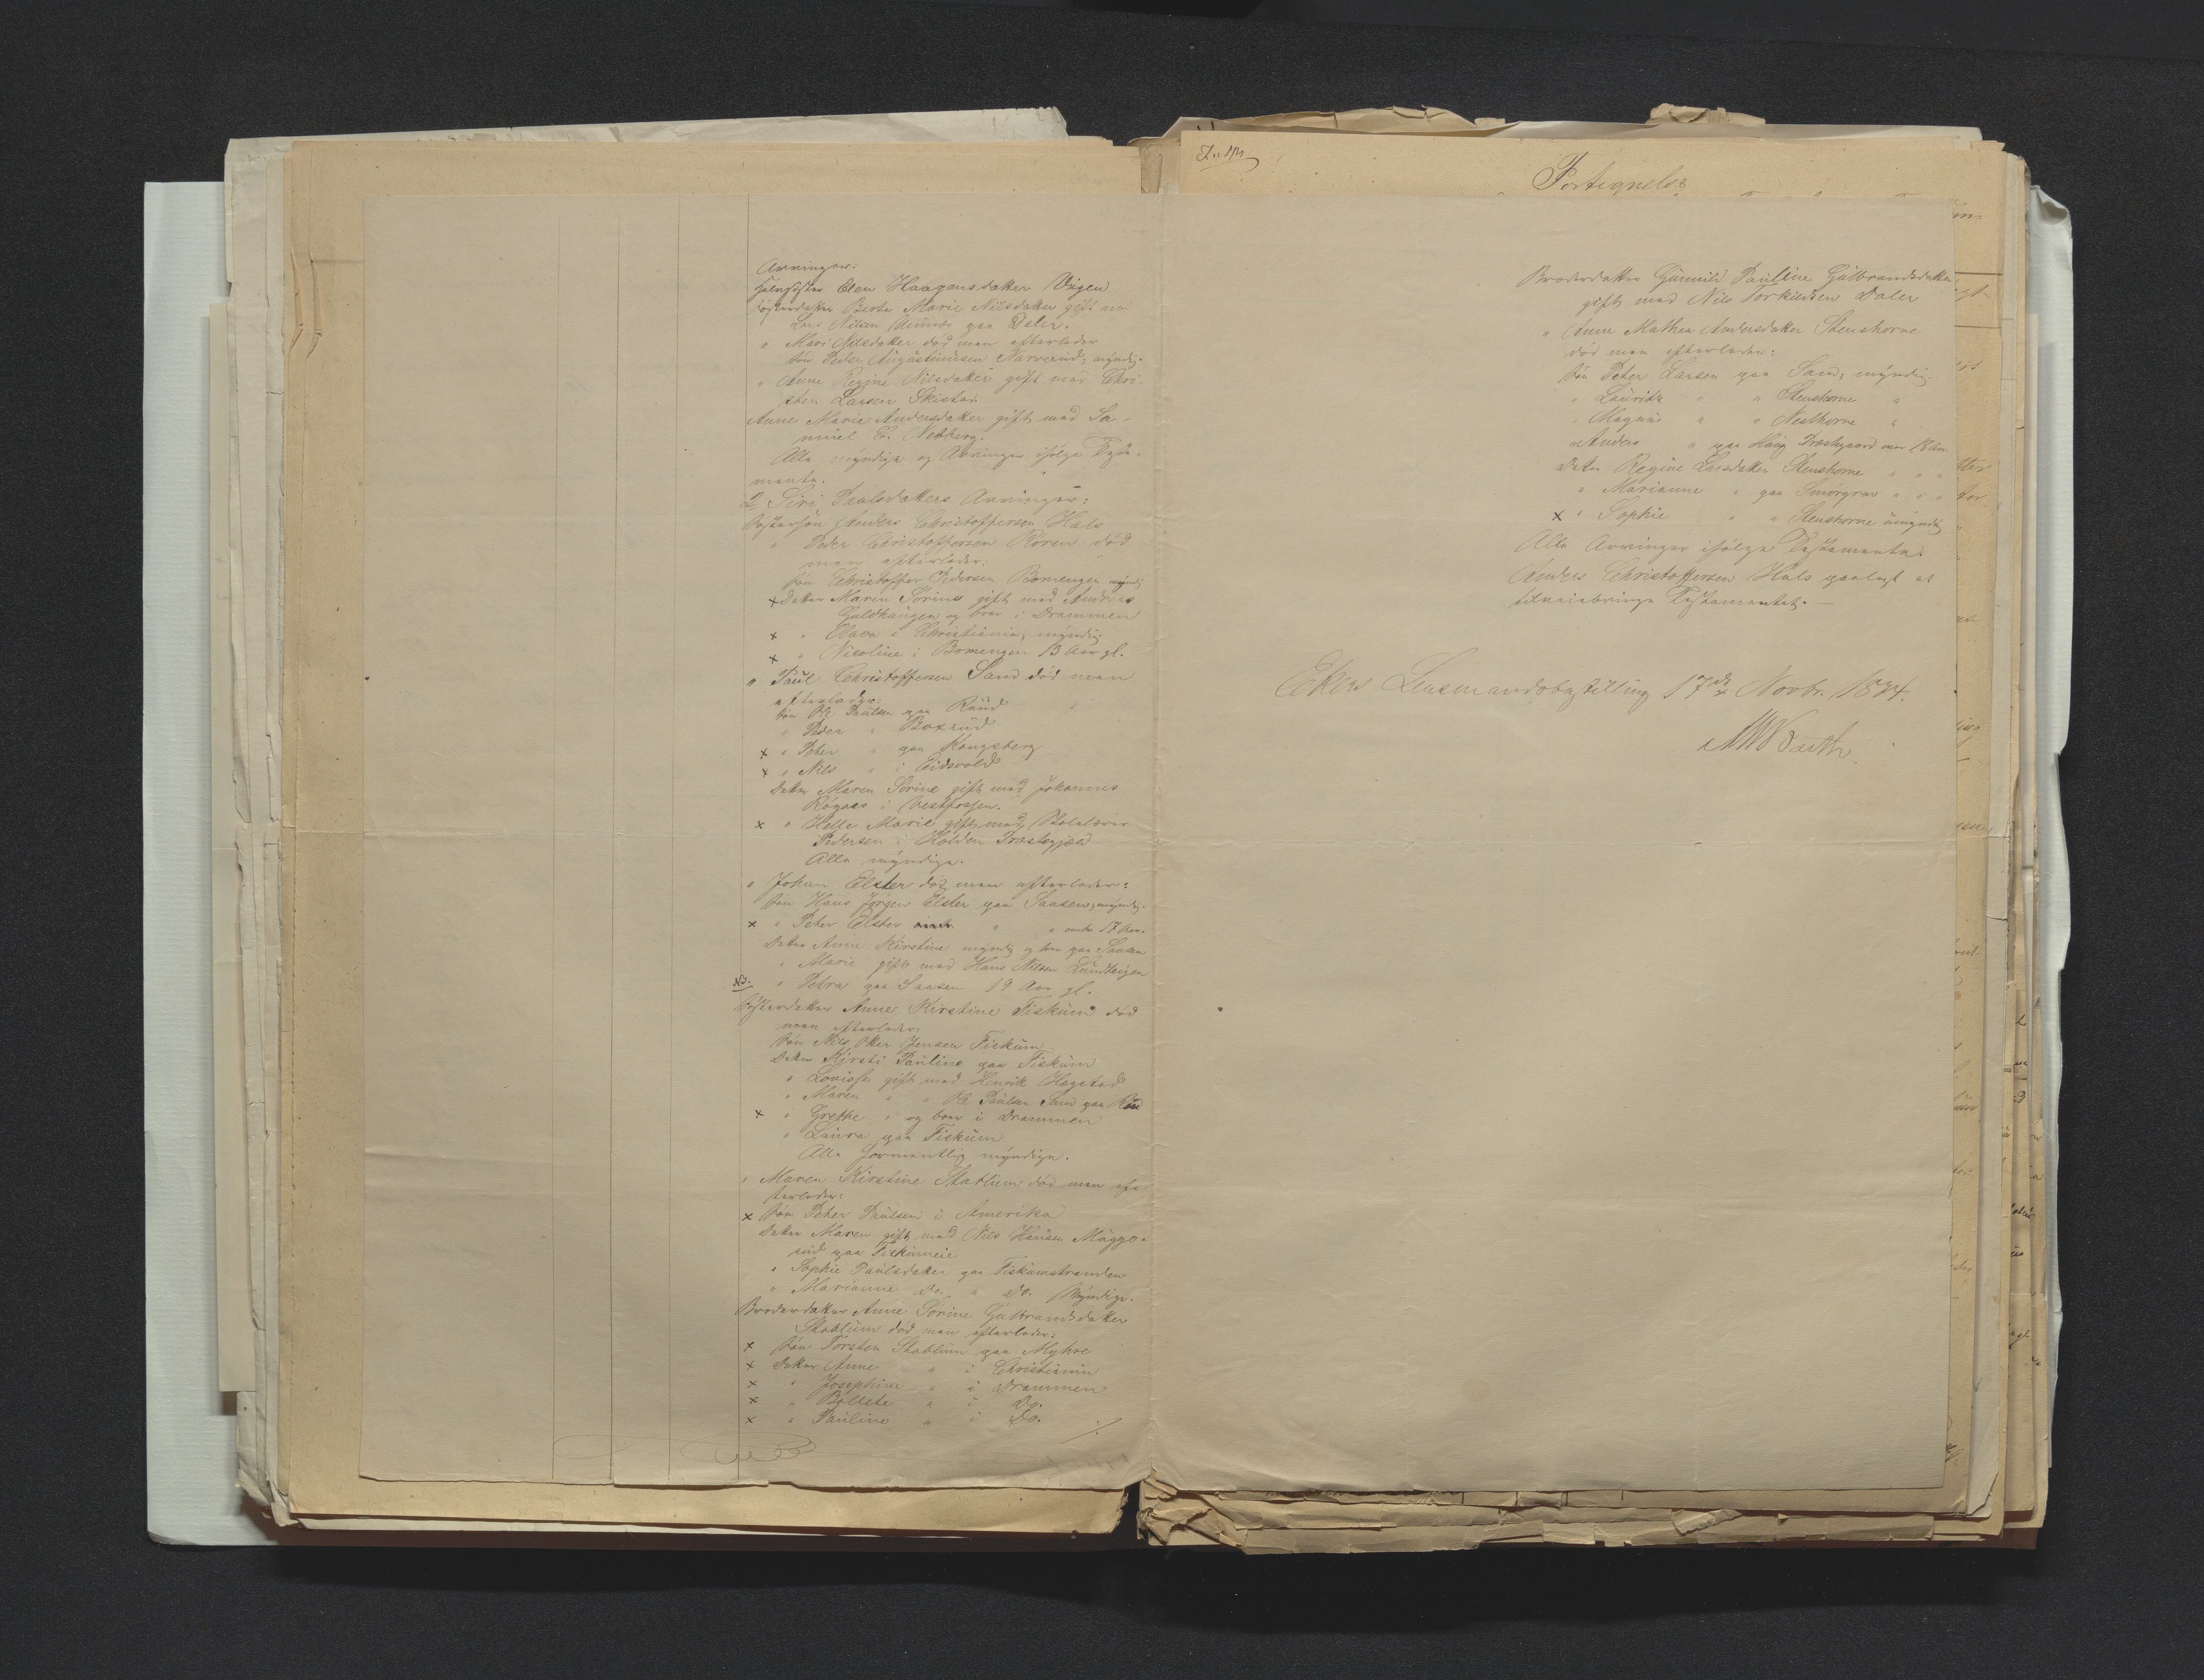 Arvinger:
Halvsøster Elen Haagensdatter Vegen
Søsterdatter Berte Marie Nilsdatter gift med
Lars Nilsen paa Daler.
" Mari Nilsdatter død men efterlader
Søn Peder Augustinusen Narverud, myndig.
" Anne Regine Nilsdatter gift med Chri-
sten Larsen Skistad
Anne Marie Andersdatter gift med Sa-
muel E. Nedberg.
Alle myndige og Arvinger ifølge Testa-
mente.
2, Siri Paulsdatters Arvinger:
Søstersøn Anders Christoffersen Hals
" Peder Christoffersen Røren død
men efterlader:
Søn Christoffer Pedersen Bomengen myndig
x Datter Maren Sørine gift med Andreas
Guldhaugen og boer i Drammen
x " Olava i Christiania, myndig
x " Nicoline i Bomengen 13 Aar gl.
" Paul Christoffersen Sand død men
efterlader:
Søn Ole Paulsen paa Ruud
" Peder " Boxrud
x " Peter " paa Kongsberg
x " Nils " i Eidsvold
Datter Maren Sørine gift med Johannes
Røgaas i Vestfossen.
x " Helle Marie gift med Skolelærer
Pedersen i Holden Præstegjæld
Alle myndige.
" Johan Elster død men efterlader:
Søn Hans Jørgen Elster paa Saasen, myndig.
x " Peter Elster " " omtr 17 Aar.
Datter Anne Kirstine myndig og boer paa Saasen
" Marie gift med Hans Nilsen Lundteigen
NB. " Petra paa Saasen 19 Aar gl.
Søsterdatter Anne Kirstine Fiskum død
men efterlader:
Søn Nils Oker Jensen Fiskum
Datter Kirsti Pauline paa Fiskum
" Lovise gift med Henrik Hagstad
" Maren " " Ole Paulsen Sand paa Ruud
x " Grethe " og boer i Drammen
" Laura paa Fiskum
Alle formentlig myndige.
" Maren Kirstine Stablum død men ef-
terlader:
x Søn Peter Paulsen i Amerika
Datter Maren gift med Nils Hansen Mugge-
rud paa Fiskumeie
" Sophie Paulsdatter paa Fiskumstranden
" Marianne do. " do. Myndige.
Broderdatter Anne Sørine Gulbrandsdatter
Stablum død men efterlader:
x Søn Torsten Stablum paa Myhre
x Datter Anne " i Christiania
x " Josephine " i Drammen
x " " i Do.
x " Pauline " i Do.
./.
Fortegnelse
Broderdatter Gunnild Pauline Gulbrandsdatter
gift med Nils Torkildsen Daler
" Anne Mathea Andersdatter Stenshorne
død men efterlader:
Søn Peter Larsen paa Sand, myndig.
" Lauritz " " Stenshorne "
" Magnus " " Nesthorne "
" Anders " paa Haug Præstegaard over 18 Aar
Datter Regine Larsdatter Stenshorne " " "
" Marianne " paa Smörgrav " " "
x " Sophie " " Stenshorne umyndig
Alle Arvinger ifølge Testamente.
Anders Christoffersen Hals paalagt at
tilveiebringe Testamentet. —
Ekers Lensmandsbestilling 17de Novbr. 1874.